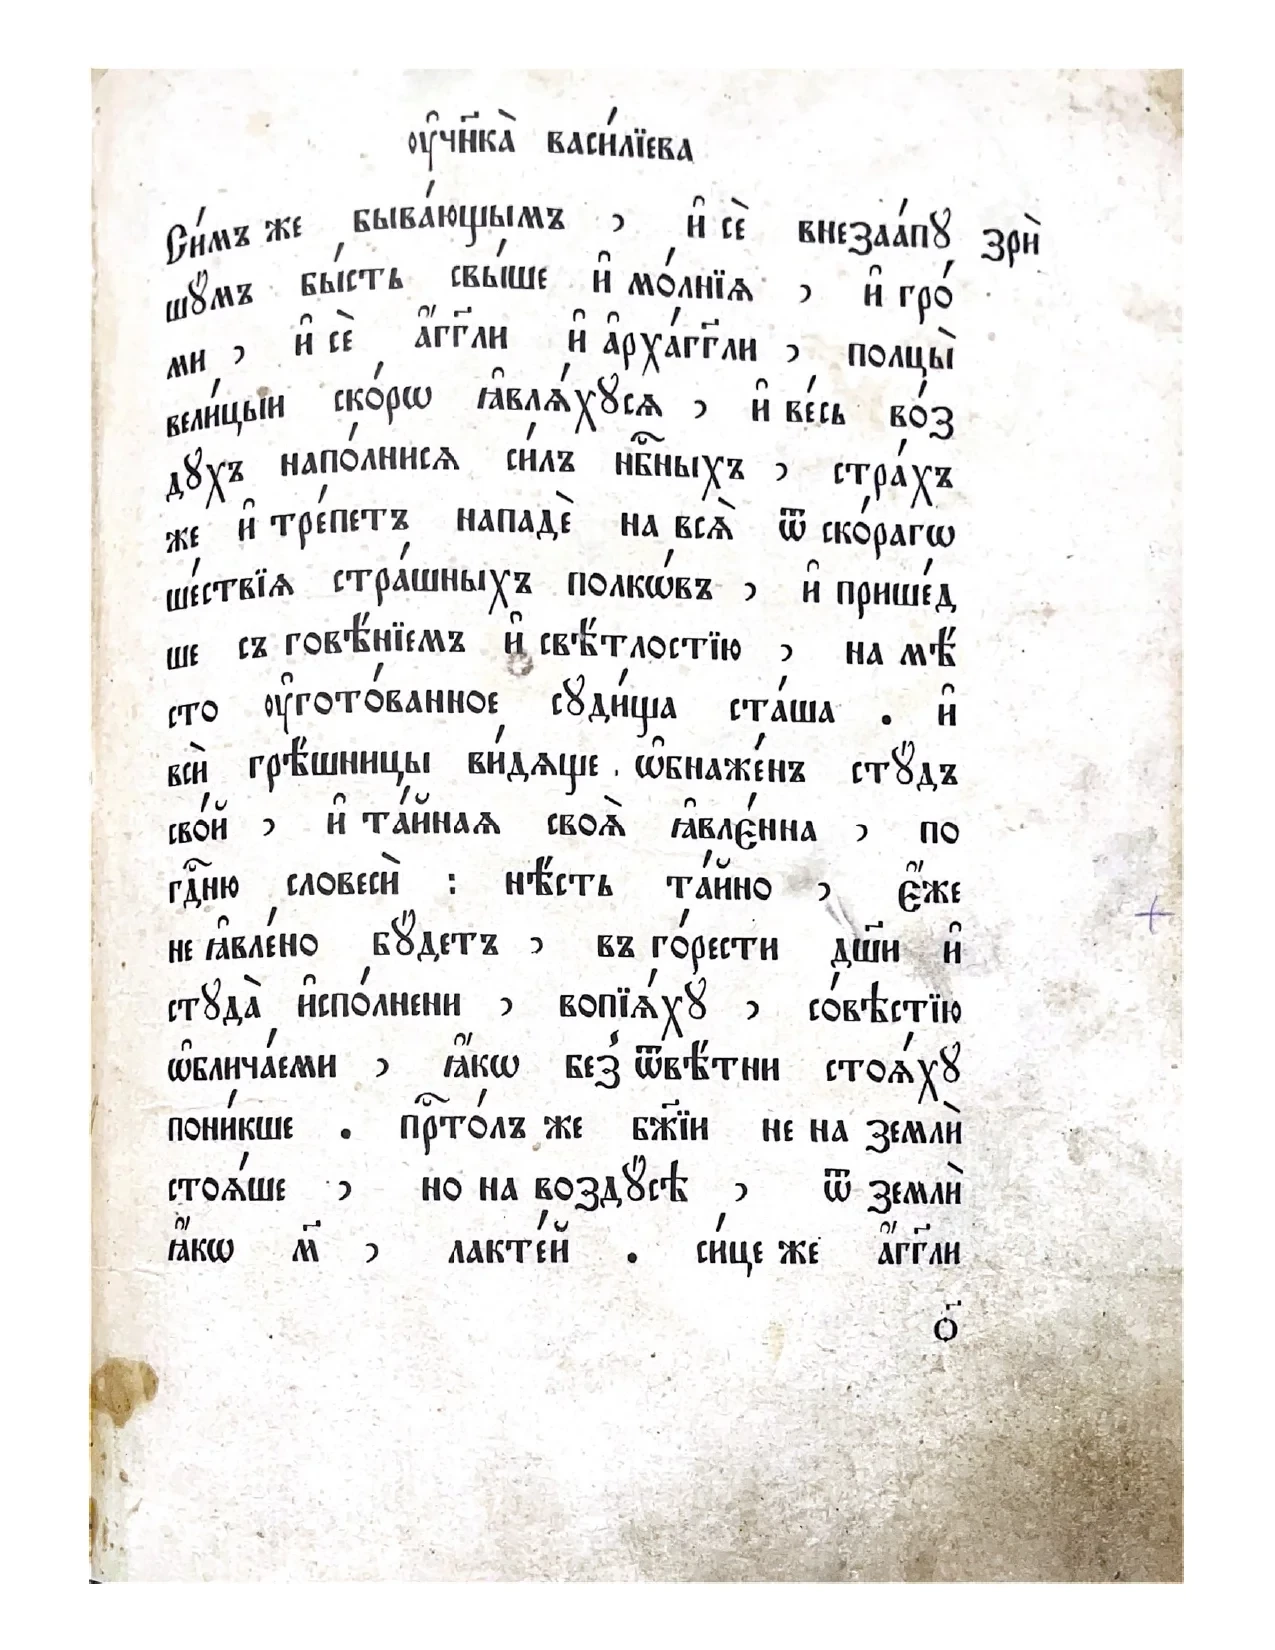 ᲂу҆чн҃кà васи́лїева
Си́мъ же быва́ющымъ , и҆ сѐ внеза́апꙋ зрѝ
шꙋ́мъ бы́сть свы́ше и҆ мо́лнїѧ , и҆ гро́
ми , и҆ сѐ а҆́гг҃ли и҆ а҆рха́гг҃ли , полцы̀
вели́цыи ско́рѡ ꙗ҆влѧ́хꙋсѧ , и҆ ве́сь во́з
дꙋхъ напо́лнисѧ си́лъ нб҃ныхъ , стра́хъ
же и҆ тре́петъ нападѐ на всѧ̀ ѿ ско́рагѡ
ше́ствїѧ стра́шныхъ полкѡ́въ , и҆ прише́д
ше съ говѣ́нїемъ и҆ свѣ́тлостїю , на мѣ́
сто ᲂу҆гото́ванное сꙋди́ща ста́ша . и҆
всѝ грѣ́шницы ви́дѧще . ѡ҆бнаже́нъ стꙋ́дъ
сво́й , и҆ та́йнаѧ своѧ̀ ꙗ҆вле́нна , по
гд҃ню словесѝ : нѣ́сть та́йно , є҆́же
не ꙗ҆вле́но бꙋ́детъ , въ го́рести дш҃и и҆
стꙋда̀ и҆спо́лнени , вопїѧ́хꙋ , со́вѣстїю
ѡ҆блича́еми , ꙗ҆́кѡ без̾ ѿвѣ́тни стоѧ́хꙋ
пони́кше . прⷭ҇то́лъ же бж҃їи не на землѝ
стоѧ́ше , но на воздꙋ́сѣ , ѿ землѝ
ꙗ҆́кѡ м҃ , лакте́й . си́це же а҆́гг҃ли
о҃